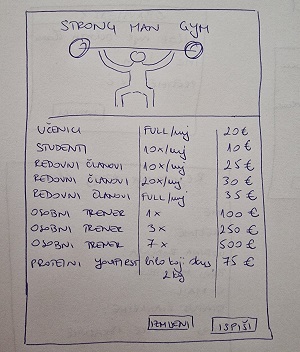 STRONG MAN GYM
UČENICI FULL/mj 20€
STUDENTI 10x/mj 10€
REDOVNI ČLANOVI 10x/mj 25€
REDOVNI ČLANOVI 20x/mj 30€
REDOVNI ČLANOVI FULL/mj 35€
OSOBNI TRENER 1x 100€
OSOBNI TRENER 3x 250€
OSOBNI TRENER 7x 500€
PROTEINI YOUFIRST bilo koji okus 75€
2kg
IZMIJENI ISPIŠI